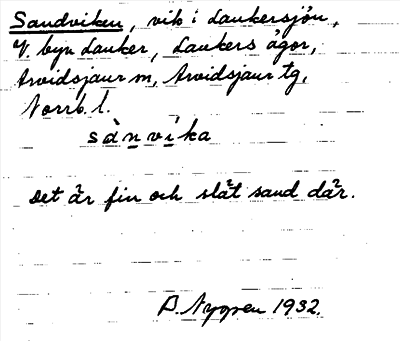 Sandviken, vik i Laukersjön,
V byn Lauker, Laukers ägor,
Arvidsjaur sn, Arvidsjaur tg,
Norrb. l.
sànvika
Det är fin och slät sand där.
B. Nygren 1932.